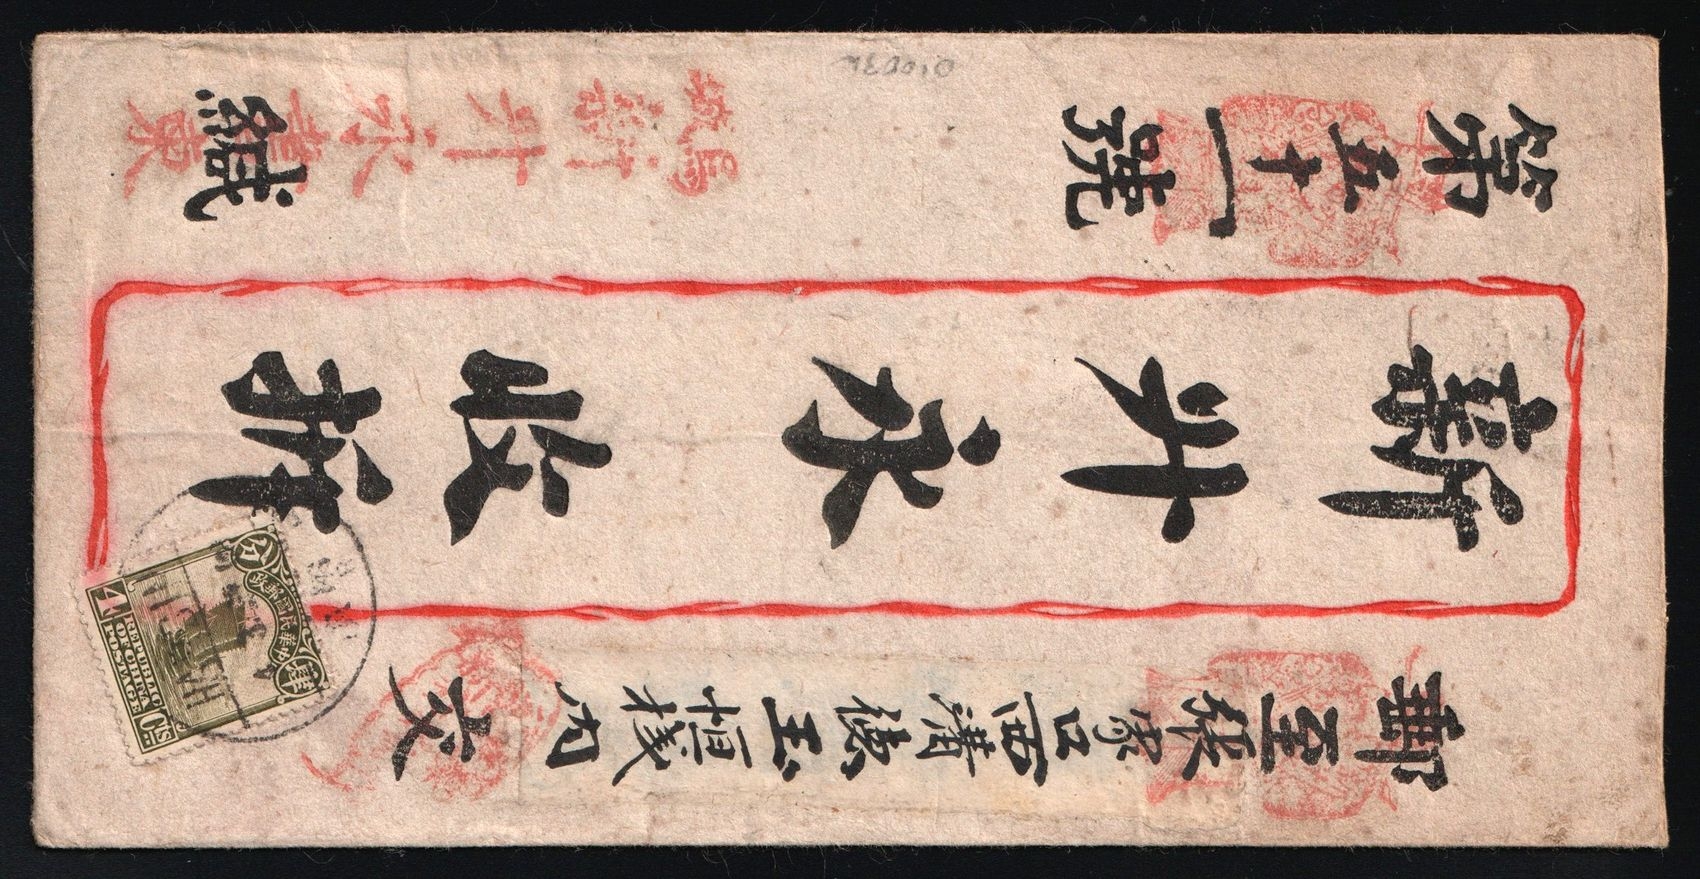 郵至張家口西溝德玉恒棧內
交
新升永收拆
第五十一號
緘
新升永
中華民國郵政
分
肆
4 Cts
REPUBLIC
OF CHINA
POSTAGE